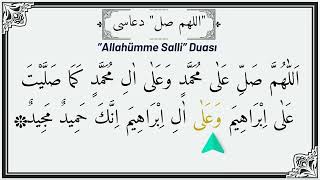 "اللهم صل" دعاسی
"Allahümme Salli" Duası
اَللّٰهُمَّ صَلِّ عَلٰى مُحَمَّدٍ وَعَلٰى اٰلِ مُحَمَّدٍ كَمَا صَلَّيْتَ
عَلٰى اِبْرَاهِيمَ وَعَلٰى اٰلِ اِبْرَاهِيمَ اِنَّكَ حَمِيدٌ مَجِيدٌ